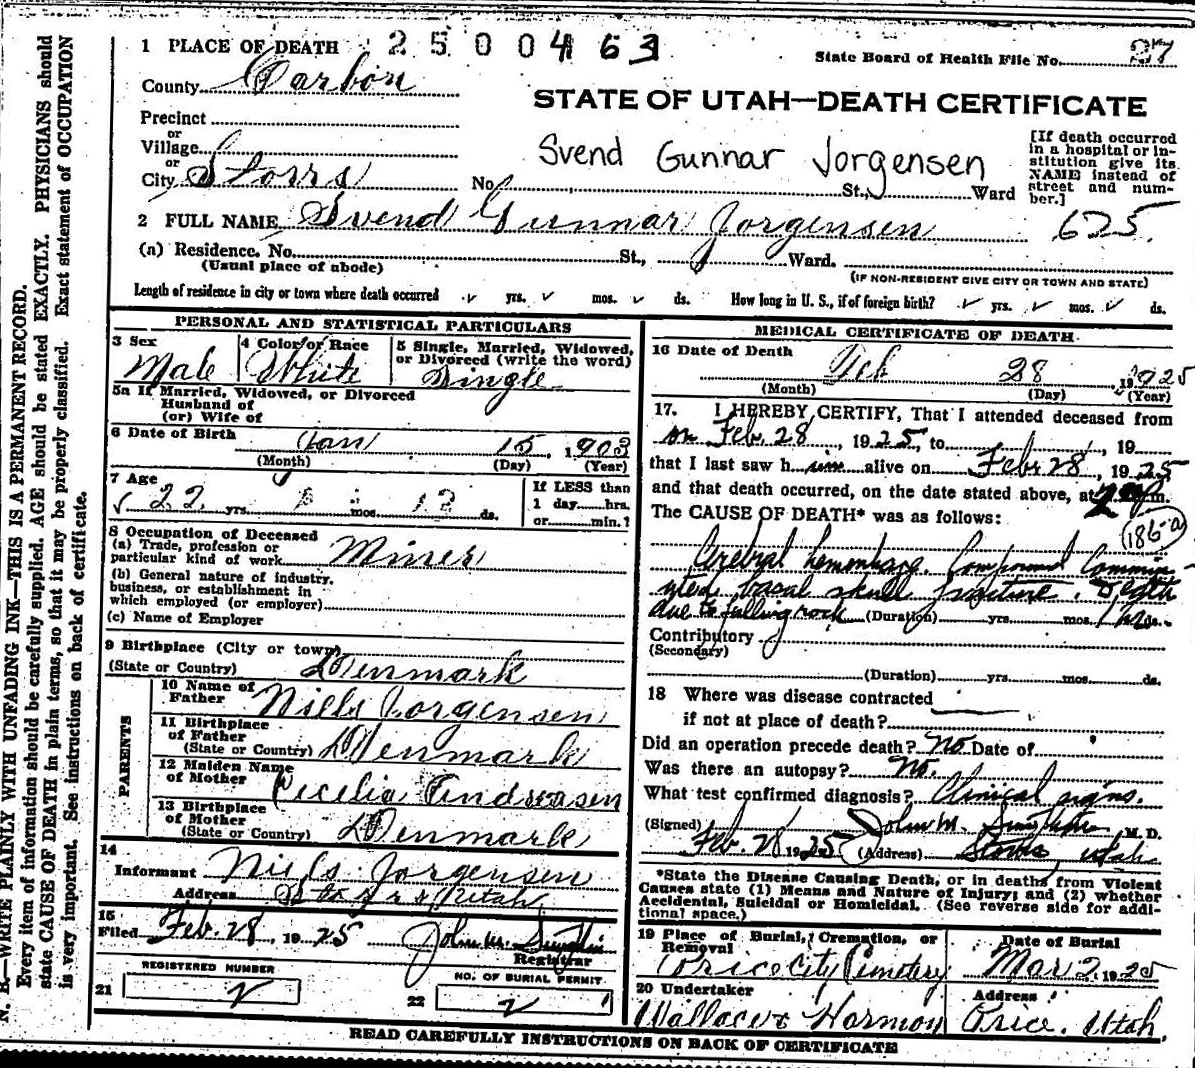 1 PLACE OF DEATH 2500463
State Board of Health File No. 27
County Carbon
STATE OF UTAH—DEATH CERTIFICATE
Precinct
or
Village
or
City Storrs No. St., Ward
Svend Gunnar Jorgensen
[If death occurred
in a hospital or in-
stitution give its
NAME instead of
street and num-
ber.]
2 FULL NAME Svend Gunnar Jorgensen 625
(a) Residence. No. St., Ward.
(Usual place of abode)
(IF NON-RESIDENT GIVE CITY OR TOWN AND STATE)
Length of residence in city or town where death occurred yrs. mos. ds. How long in U. S., if of foreign birth? yrs. mos. ds.
PERSONAL AND STATISTICAL PARTICULARS
3 Sex
Male
4 Color or Race
White
5 Single, Married, Widowed,
or Divorced (write the word)
Single
5a If Married, Widowed, or Divorced
Husband of
(or) Wife of
6 Date of Birth Jan 15, 1903
(Month) (Day) (Year)
7 Age
22 yrs. 1 mos. 13 ds.
If LESS than
1 day hrs.
or min.?
8 Occupation of Deceased
(a) Trade, profession or
particular kind of work Miner
(b) General nature of industry,
business, or establishment in
which employed (or employer)
(c) Name of Employer
9 Birthplace (City or town)
(State or Country) Denmark
PARENTS
10 Name of
Father Niels Jorgensen
11 Birthplace
of Father
(State or Country) Denmark
12 Maiden Name
of Mother Cecilia Andreasen
13 Birthplace
of Mother
(State or Country) Denmark
14
Informant Niels Jorgensen
Address Storrs Utah
15
Filed Feb. 28, 1925 John M.
Registrar
REGISTERED NUMBER
21
NO. OF BURIAL PERMIT
22
MEDICAL CERTIFICATE OF DEATH
16 Date of Death Feb 28 1925
(Month) (Day) (Year)
17. I HEREBY CERTIFY, That I attended deceased from
on Feb. 28, 1925, to , 19
that I last saw him alive on Feb. 28, 1925
and that death occurred, on the date stated above, at m.
The CAUSE OF DEATH* was as follows:
186-a
Cerebral hemorrhage. Compound Commin-
uted basal skull fracture. Death
due to falling rock (Duration) yrs. mos. ds.
Contributory
(Secondary)
(Duration) yrs. mos. ds.
18 Where was disease contracted
if not at place of death?
Did an operation precede death? No Date of
Was there an autopsy? No.
What test confirmed diagnosis? Clinical signs.
(Signed) John M. M. D.
Feb. 28 1925 (Address) Storrs, Utah
*State the Disease Causing Death, or in deaths from Violent
Causes state (1) Means and Nature of Injury; and (2) whether
Accidental, Suicidal or Homicidal. (See reverse side for addi-
tional space.)
19 Place of Burial, Cremation, or
Removal
Price City Cemetery
Date of Burial
Mar 2 1925
20 Undertaker
Wallace & Harmon
Address
Price, Utah,
READ CAREFULLY INSTRUCTIONS ON BACK OF CERTIFICATE
N. B.—WRITE PLAINLY WITH UNFADING INK—THIS IS A PERMANENT RECORD.
Every item of information should be carefully supplied. AGE should be stated EXACTLY. PHYSICIANS should
state CAUSE OF DEATH in plain terms, so that it may be properly classified. Exact statement of OCCUPATION
is very important. See instructions on back of certificate.